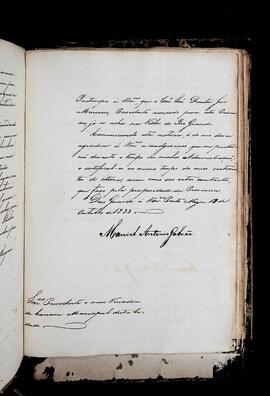 Participo á V.mces que o Ex.mo Snr. Doutor José
Mariani Presidente nomeado para esta Provin
cia já se acha na Villa do Rio Grande.
Communicando esta noticia, é do meu dever
agradecer á V.mces a coadjuvação que me
durante o tempo da minha Administração,
e certificar os meus
de estima assim como
que faço pela prosperidade da Provincia.
Deus Guarde a V.mces Porto Alegre 18 de
Outubro de 1833
Manoel Antonio Galvão
Snr.es Presidente e mais Vereadores
da Camara Municipal desta Ci
dade